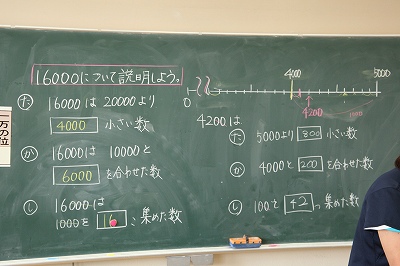 一万の位
16000について説明しよう。
た 16000は 20000より
4000 小さい数
か 16000は 10000と
6000 を合わせた数
し 16000は
1000を 16こ集めた数
0 4000 5000
4200
4200は
た 5000より 800 小さい数
か 4000と 200 を合わせた数
し 100を 42こ集めた数